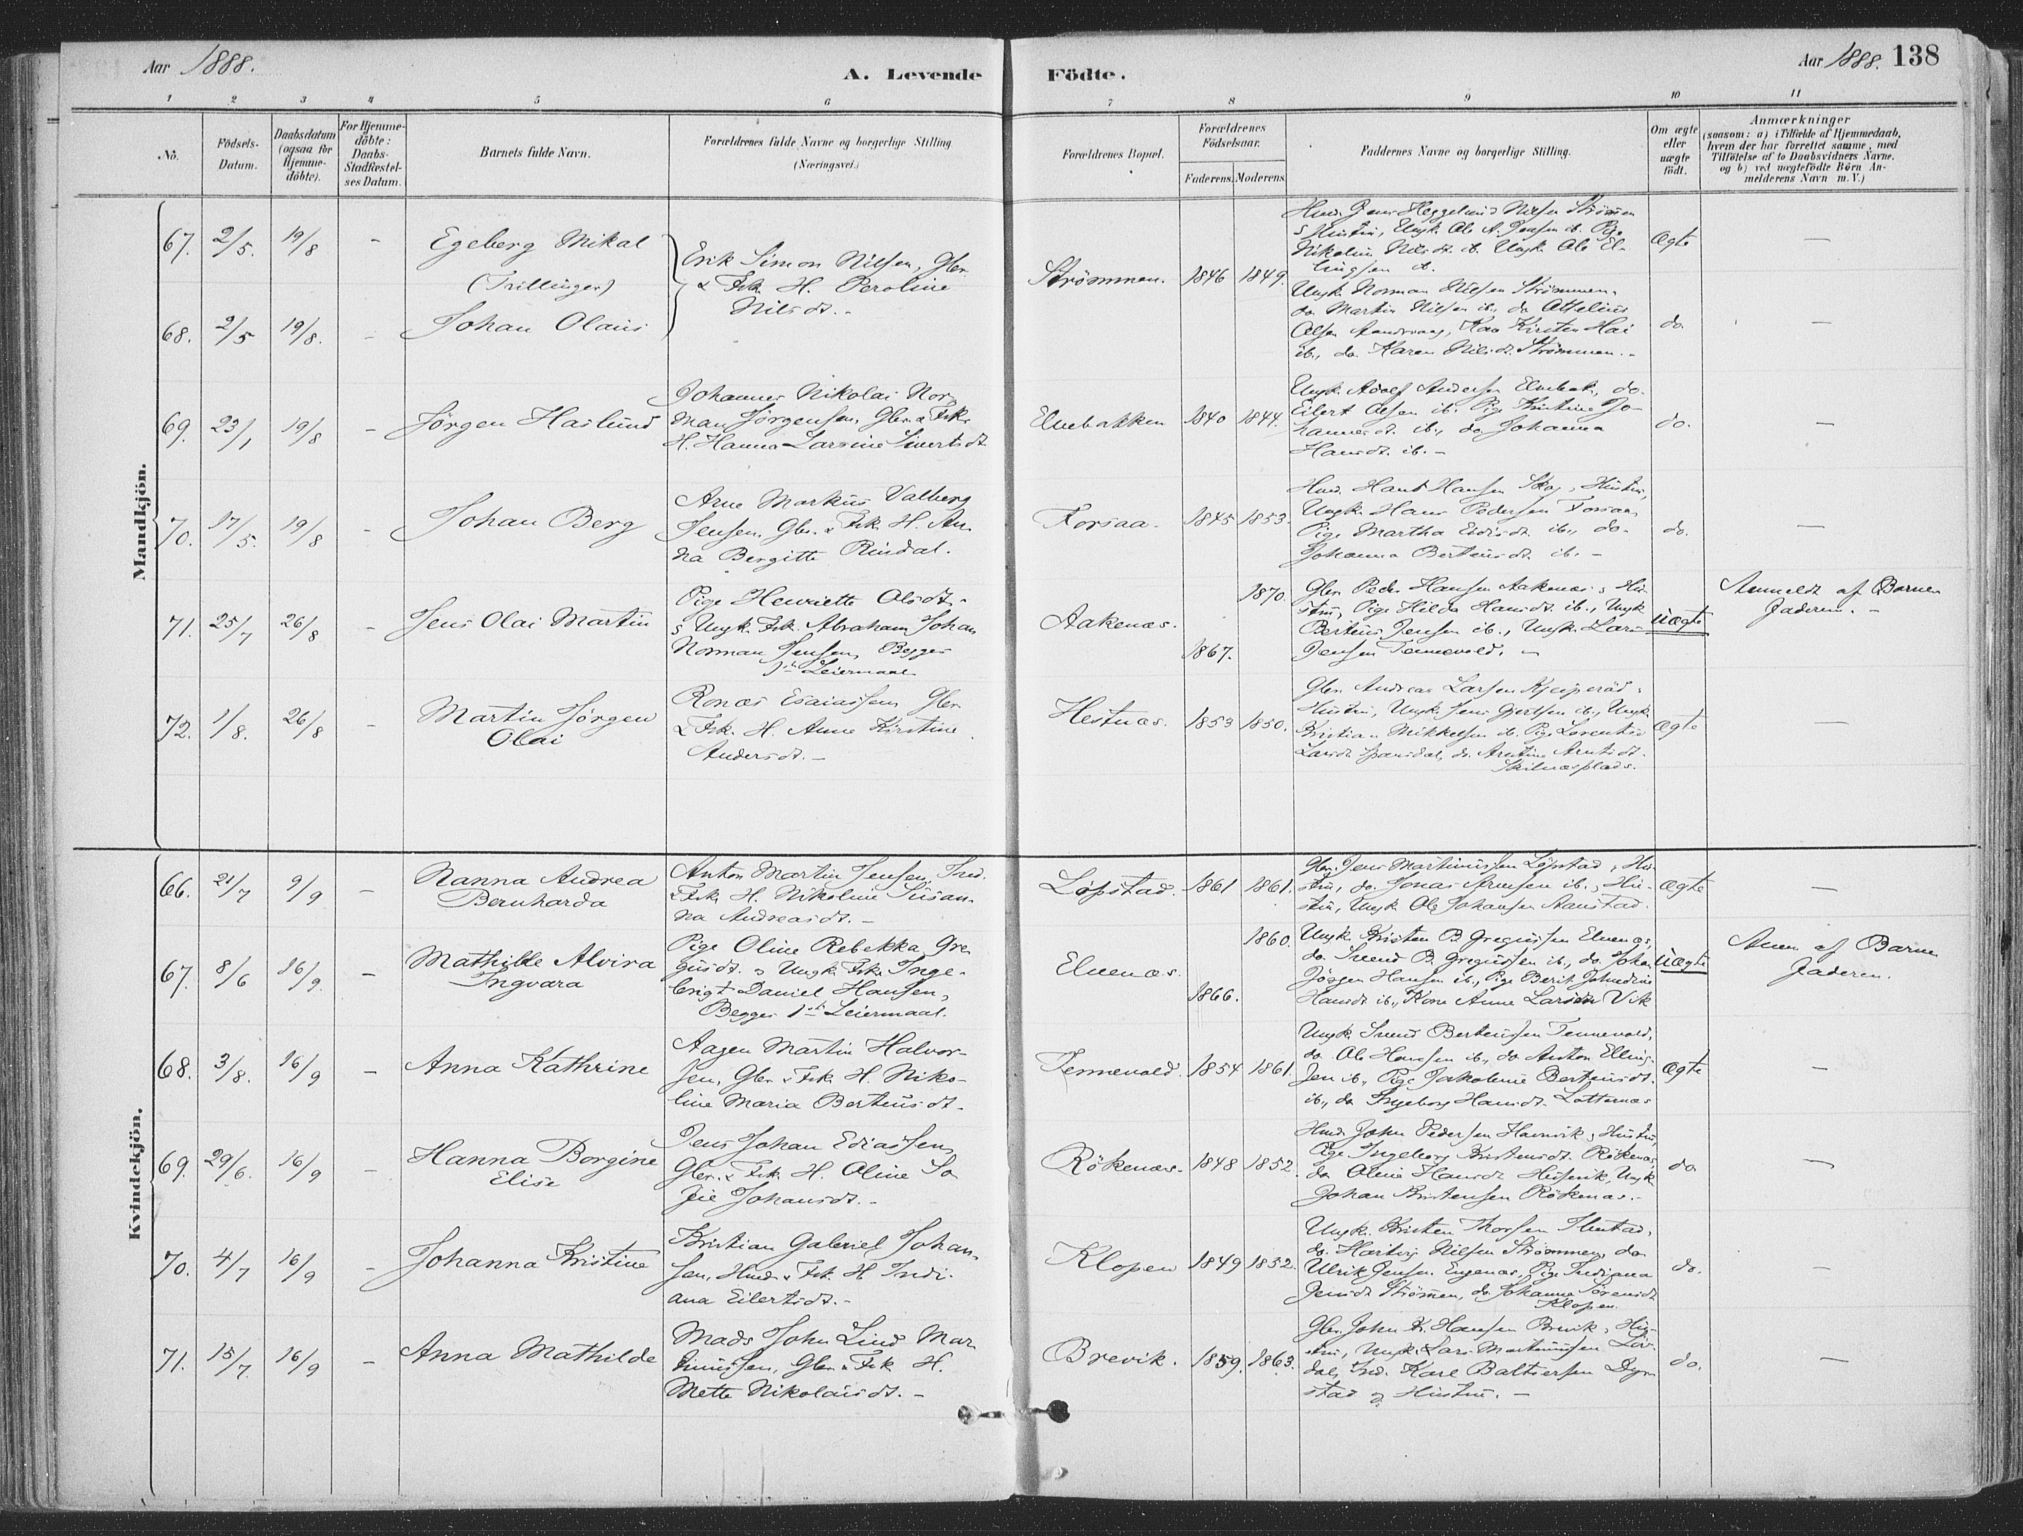 Aar 1888.
A. Levende Födte.
Aar 1888. 138
1 2 3 4 5 6 7 8 9 10 11
No.
Födsels-Datum.
Daabsdatum (ogsaa for Hjemme-döbte).
For Hjemme-döbte: Daabs-Stadfæstel-ses Datum.
Barnets fulde Navn.
Forældrenes fulde Navne og borgerlige Stilling (Næringsvei.)
Forældrenes Bopæl.
Forældrenes Födselsaar.
Faderens. Moderens.
Faddernes Navne og borgerlige Stilling.
Om ægte eller uægte födt.
Anmærkninger
(saasom: a) i Tilfælde af Hjemmedaab,
hvem der har forrettet samme, med
Tilföielse af to Daabsvidners Navne,
og b) ved uægtefödte Börn An-
melderens Navn m. V.)
Mandkjön.
67. 2/5. 19/8 - Egeberg Mikal
(Trillinger)
Erik Simon Nilsen, Gbr.
& Fsk. H. Peroline
Nilsdt. -
Strømmen. 1846 1849.
Hmd. Jens Heggelund Nilsen Strømmen
s Hustru, Ungk. Ole A. Jensen ib. Pige
Nikoline Nilsdt. ib. Ungk. Ole El-
lingsen ib.
Ægte —
68. 2/5 19/8. - Johan Olaus
Ungk. Norman Nilsen Strømmen.
do Martin Nilsen ib., do Ottelius
Olsen, Kirsten
ib., do. Karen Nilsdt. Strømmen. -
do —
69. 23/1 19/8 - Jørgen Haslund
Johannes Nikolai Nor-
man Jørgensen, Gbr. & Fsk.
H. Hanna Larsine Sivertsdt.
Elvebakken 1840 1844.
Ungk. Adolf Andersen Elvebak., do.
Eilert Olsen ib. Pige Kristine Jo-
hannesdt. ib., do Johanna
Hansdt. ib. -
do. —
70. 17/5. 19/8 - Johan Berg
Arne Markus Valberg
Jensen, Gbr. & Fsk. H. An-
na Bergitte Rindal.
Forsaa. 1845 1853.
Hmd. Hans Hansen Skog, Hustru,
Ungk. Hans Pedersen Forsaa,
Pige Martha ib., do.
Johanna Berteusdt. ib. -
do. —
71. 25/7 26/8 - Jens Olai Martin
Pige Henriette Olsdt.
s Ungk. Fsk. Abraham Johan
Norman Jensen, Begges
1ste Leiermaal
Aakenæs. 1867. 1870.
Gbr. Peder Hansen Aakenæs s Hu-
stru, Pige Hilda Hansdt. ib., Ungk.
Berteus Jensen ib., Ungk. Lars
Jensen Tennevold. -
Uægte
Anmeldt af Barne-
faderen. -
72. 1/8. 26/8 - Martin Jørgen
Olai
Ronæs Esaiassen Gbr.
& Fsk. H. Anne Kirstine
Andersdt. -
Hestnæs. 1853 1850.
Gbr. Andreas Larsen s
Hustru, Ungk. Jens Gjertsen ib., Ungk.
Kristian Mikkelsen ib. Pige Lorentse
Larsdt. Spansdal, do. Arntine Arntsdt.
Ægte —
Kvindekjön.
66. 21/7 9/9 - Nanna Andrea
Bernharda
Anton Martin Jensen, Ind.
& Fsk. H. Nikoline Susan-
na Andreasdt. -
Løpstad. 1861 1861.
Gbr. Jens Martinussen Løpstad s Hu-
stru, do. Jonas Arnesen ib., Hu-
stru, Ungk. Ole Johansen Aanstad.
Ægte —
67. 8/6 16/9. - Mathilde Alvira
Ingvara
Pige Oline Rebekka Gre-
gusdt. s Ungk. Fsk. Inge-
brigt Daniel Hansen,
Begges 1ste Leiermaal.
Elvenæs. 1866. 1860.
Ungk. Kristen B. Gregussen Elvenæs,
do. Svend B. Gregussen ib., do Johan
Jörgen Hansen ib., Pige Berit
Hansdt. ib., Kone Anne Larsdt. Vik
Uægte
Anm. af Barne
faderen.
68. 3/8. 16/9 - Anna Kathrine
Aagen Martin Halvor-
sen, Gbr. & Fsk. H. Niko-
line Maria Berteusdt.
Tennevold. 1854 1861.
Ungk. Svend Berteussen Tennevold,
do. Ole Hansen ib., do Anton Elling-
sen ib., Pige Jakoline Berteusdt.
ib., do Ingeborg Hansdt.
Ægte -
69. 29/6. 16/9 - Hanna Borgine
Elise
Jens Johan Ediassen,
Gbr. & Fsk. H. Oline So-
fie Johansdt. -
Rökenæs. 1848 1852.
Hmd. John Pedersen Havnvik s Hustru,
Pige Ingeborg Kristensdt. Rökenæs,
do Oline Hansdt. Husevik, Ungk.
Johan Kristensen Rökenæs. -
do —
70. 4/7 16/9 - Johanna Kristine
Kristian Gabriel Johan-
sen, Hmd. & Fsk. H. Indi-
ana Eilertsdt. -
Klopen 1849 1852.
Ungk. Kristen Thorsen Ibestad,
do. Hartvig Nilsen Strømmen, do
Ulrik Jensen Engenæs, Pige Indiana
Jensdt. Strømmen, do. Johanna Sörensdt.
Klopen.
do. —
71. 15/7. 16/9 - Anna Mathilde
Mads John Lind Mar-
tinussen, Gbr. & Fsk. H.
Mette Nikolaisdt. -
Brevik. 1859. 1863.
Gbr. John Kr. Hansen Brevik s Hu-
stru, Ungk. Lars Martinussen Løv-
dal, Ind. Karl Baltsersen
stad og Hustru. -
do. —